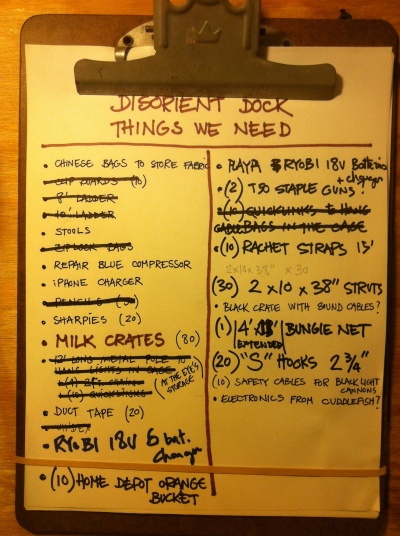 DISORIENT DOCK
THINGS WE NEED
• CHINESE BAGS TO STORE FABRIC
CLIP BOARDS (10)
8' LADDER
10' LADDER
• STOOLS
ZIPLOCK BAGS
• REPAIR BLUE COMPRESSOR
• IPHONE CHARGER
PENCILS
• SHARPIES (20)
• MILK CRATES (80)
12' LONG METAL POLE TO
HANG LIGHTS IN CAGE
(4) 2ft chain
(10) QUICKLINKS
(AT THE EYE'S
STORAGE)
• DUCT TAPE (20)
• RYOBI 18V 6 bat.
Charger
• (10) HOME DEPOT ORANGE
BUCKET
• PLAYA RYOBI 18V Batteries
+ charger
• (2) T50 STAPLE GUNS?
(10) QUICKLINKS TO HANG
CABLE BAGS IN THE CAGE
• (10) RACHET STRAPS 15'
2x10x38" x 30
(30) 2 x 10 x 38" STRUTS
• BLACK CRATE WITH SOUND CABLES?
(1) 14' BUNGIE NET
EXTENDED
(20) "S" HOOKS 2 3/4"
• (10) SAFETY CABLES FOR BLACK LIGHT
CANNONS
• ELECTRONICS FROM CUDDLEFISH?